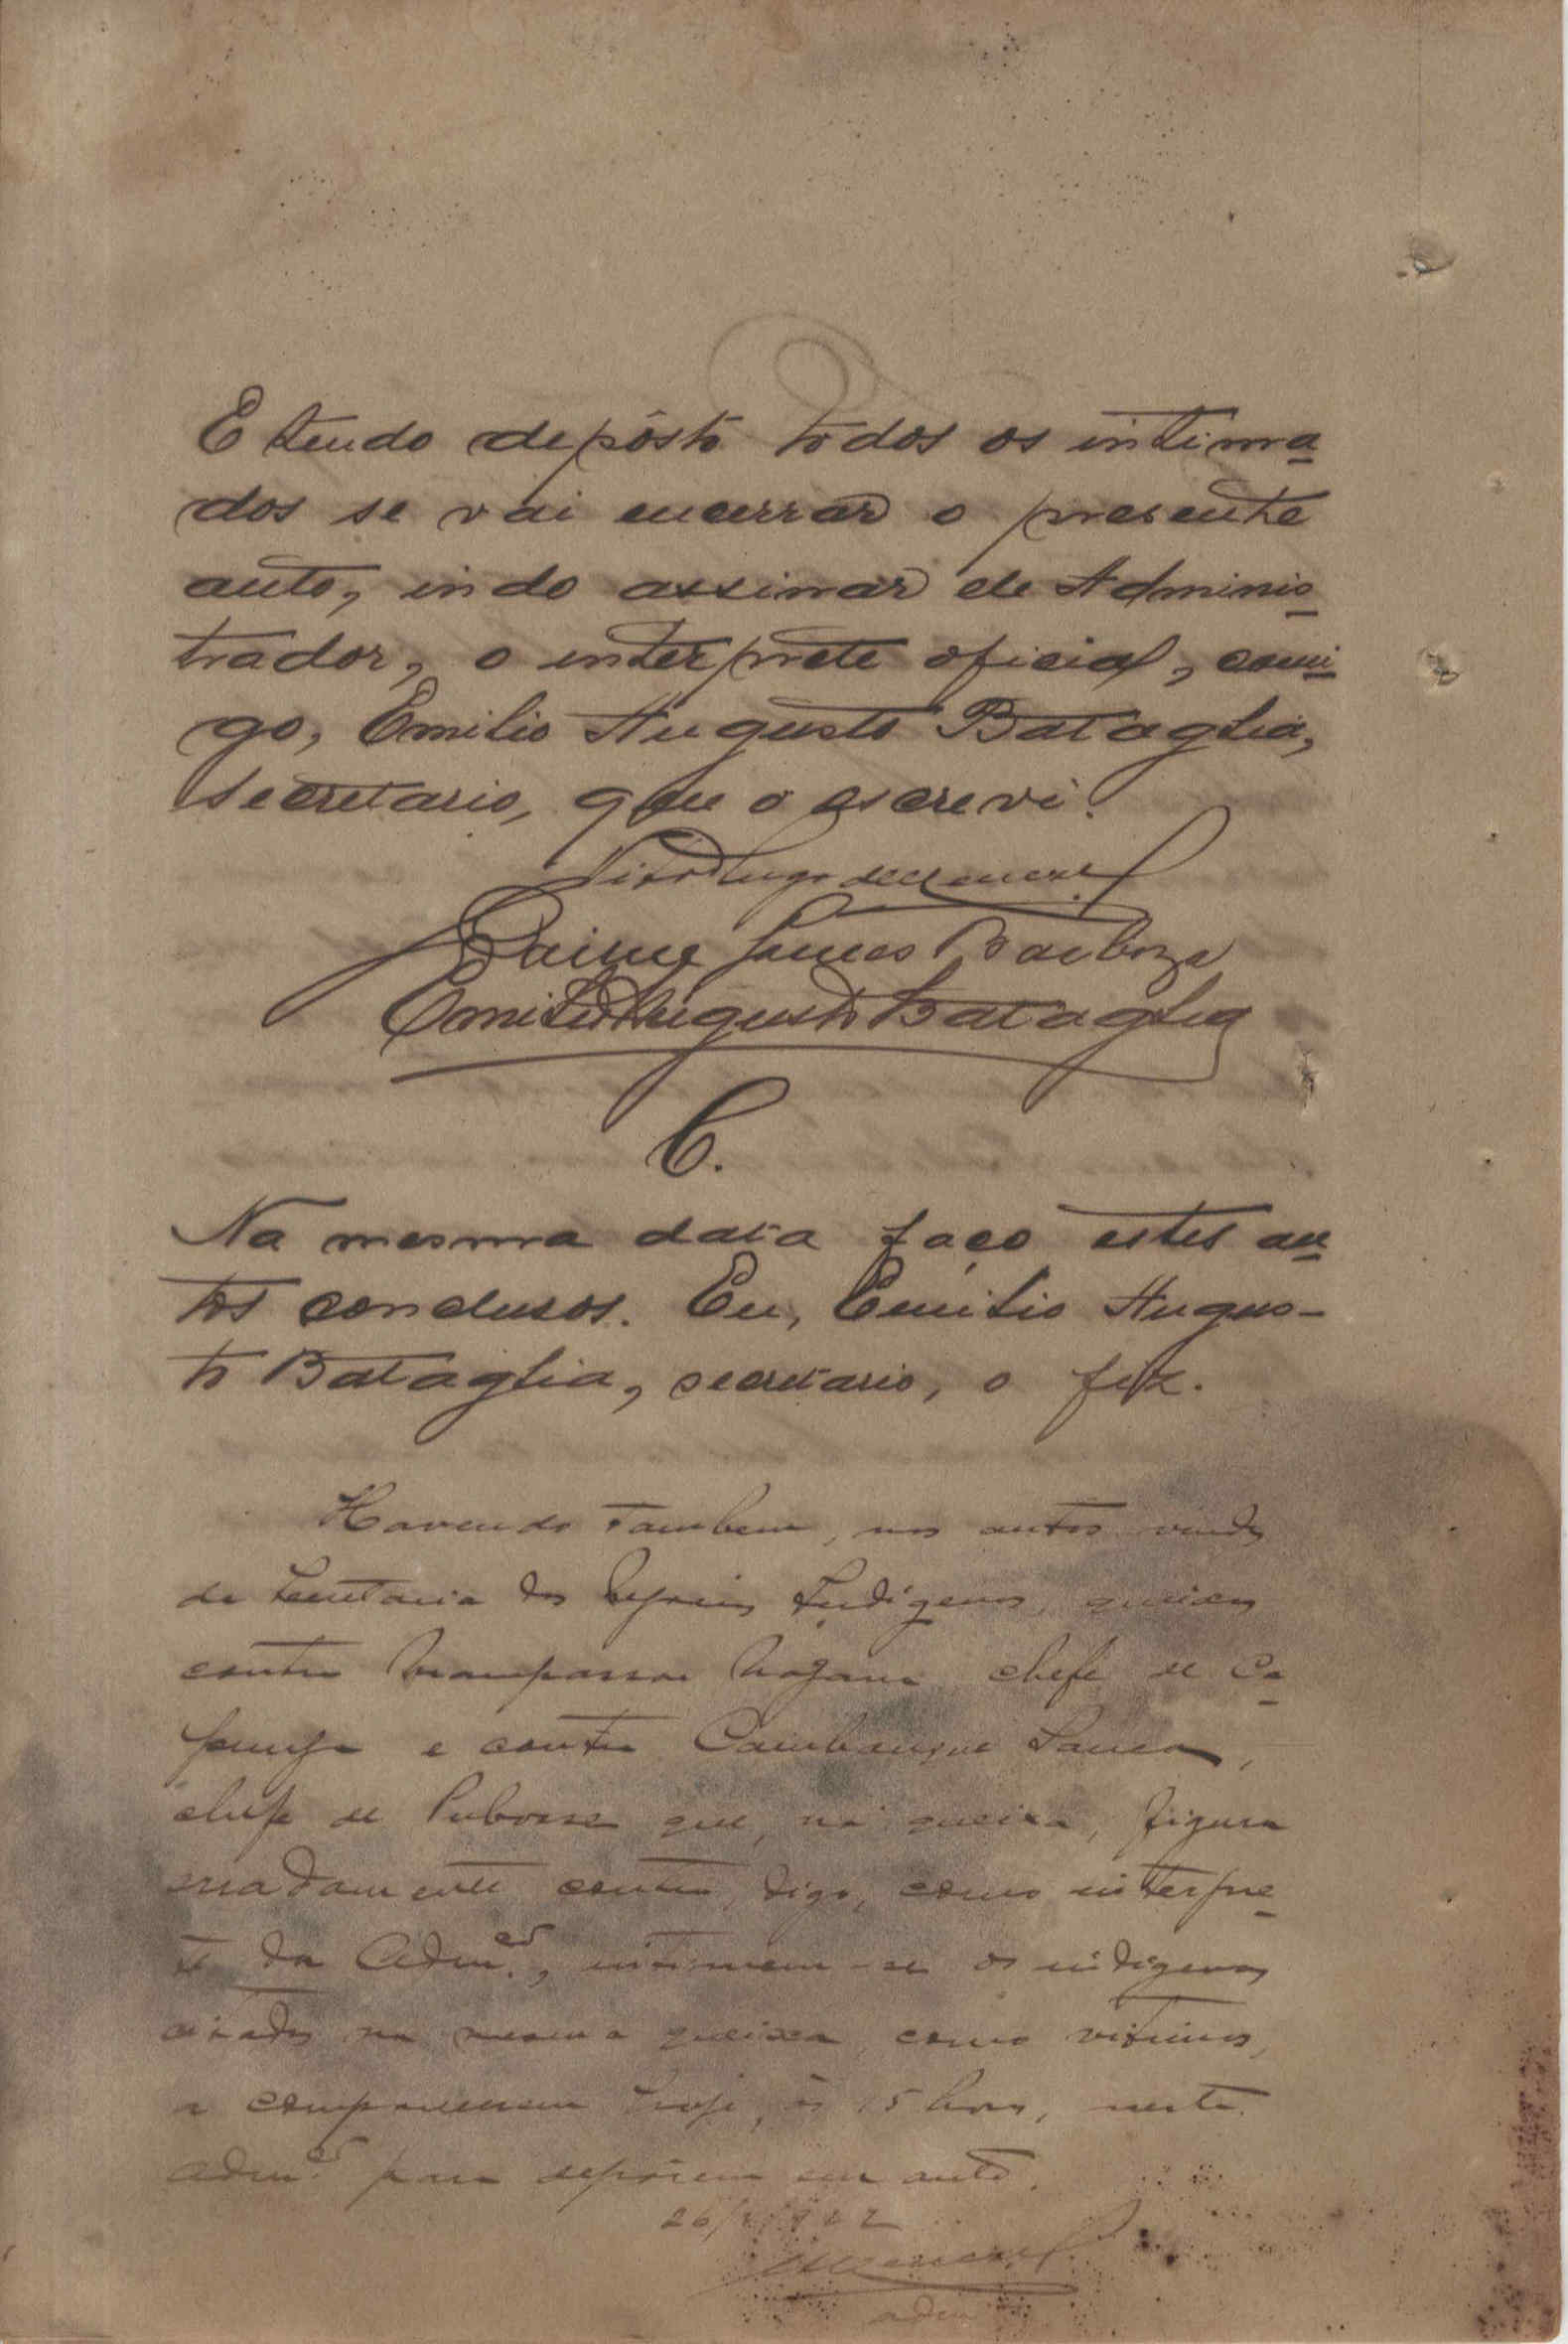 E tendo depôsto todos os intima
dos se vai encerrar o presente
auto, indo assinar ele Adminis
trador, o interprete oficial, comi
go, Emilio Augusto Bataglia,
secretario, que o escrevi.
Vitor Hugo de Menezes
Jaime Gomes Barboza
Emilio Augusto Bataglia
C.
Na mesma data faço estes au
tos conclusos. Eu, Emilio Augus-
to Bataglia, secretario, o fiz.
Havendo tambem, nos autos vindos
da Secretaria dos Negocios Indigenas, queixas
contra chefe de Ca
e contra Sanca,
chefe de que, na queixa, figura
erradamente contra, digo, como interpre
te da Admᶜᵃᵒ, intimem-se os indigenas
citados na mesma queixa como vitimas,
a comparecerem hoje, ás 15 horas, nesta
Admᶜᵃᵒ para depôrem em auto.
Menezes
adm